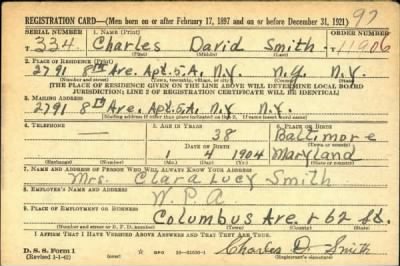 REGISTRATION CARD—(Men born on or after February 17, 1897 and on or before December 31, 1921) 97
SERIAL NUMBER 1. NAME (Print) ORDER NUMBER
T 334 Charles David Smith T11906
(First) (Middle) (Last)
2. PLACE OF RESIDENCE (Print)
2791 8th Ave. Apt. 5.A. N.Y. N.Y. N.Y.
(Number and street) (Town, township, village, or city) (County) (State)
[THE PLACE OF RESIDENCE GIVEN ON THE LINE ABOVE WILL DETERMINE LOCAL BOARD
JURISDICTION; LINE 2 OF REGISTRATION CERTIFICATE WILL BE IDENTICAL]
3. MAILING ADDRESS
2791 8th Ave. Apt. 5A. N.Y N.Y.
[Mailing address if other than place indicated on line 2. If same insert word same]
4. TELEPHONE 5. AGE IN YEARS 6. PLACE OF BIRTH
— 38 Baltimore
DATE OF BIRTH (Town or county)
1 4 1904 Maryland
(Exchange) (Number) (Mo.) (Day) (Yr.) (State or country)
7. NAME AND ADDRESS OF PERSON WHO WILL ALWAYS KNOW YOUR ADDRESS
Mrs. Clara Lucy Smith
8. EMPLOYER'S NAME AND ADDRESS
W.P.A.
9. PLACE OF EMPLOYMENT OR BUSINESS
Columbus Ave + 62 St.
(Number and street or R. F. D. number) (Town) (County) (State)
I AFFIRM THAT I HAVE VERIFIED ABOVE ANSWERS AND THAT THEY ARE TRUE.
D. S. S. Form 1
(Revised 1-1-42) (over) GPO 16—21630-1 Charles D. Smith
(Registrant's signature)